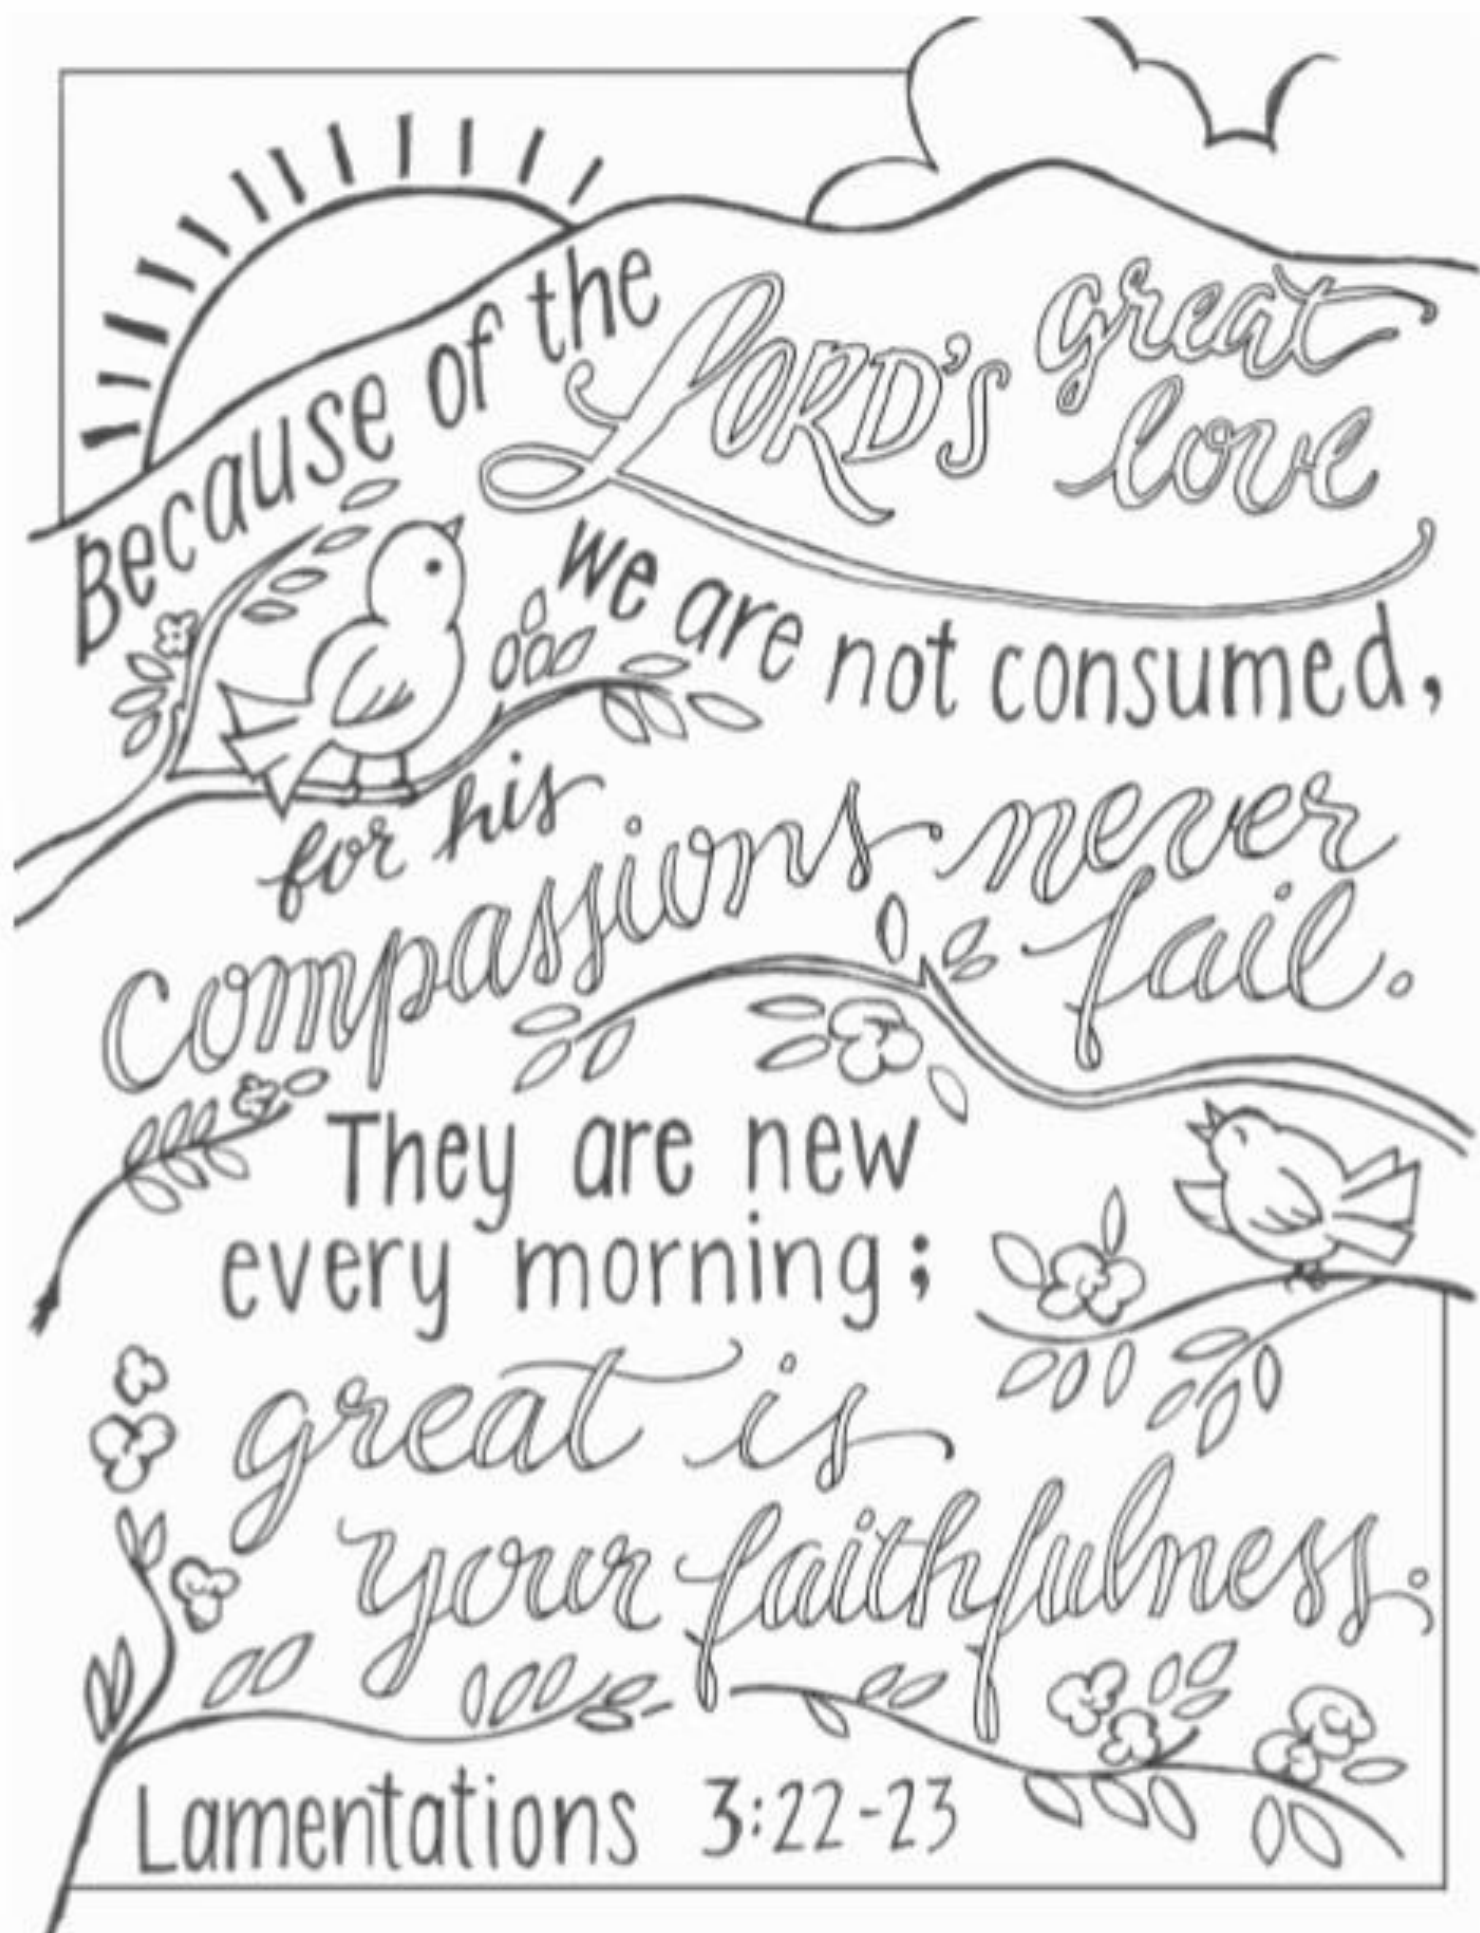 Because of the LORD's great love
we are not consumed,
for his
compassions never
fail.
They are new
every morning;
great is
your faithfulness.
Lamentations 3:22-23